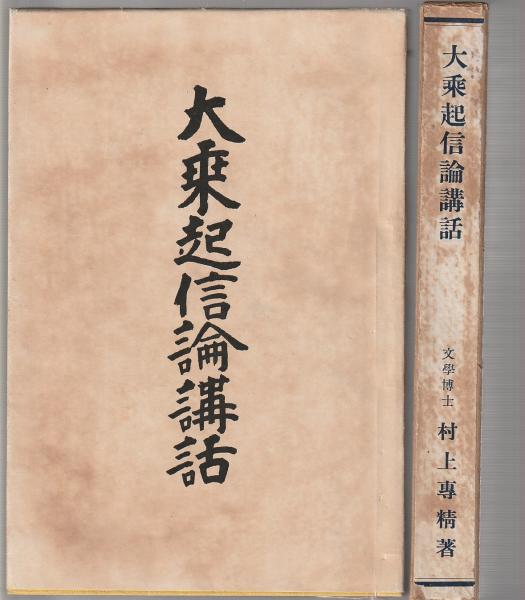 大乘起信論講話
大乘起信論講話
文學博士 村上專精著